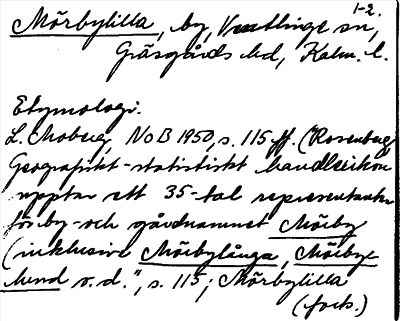 1-2.
Mörbylilla, by, Ventlinge sn,
Gräsgårds hd, Kalm. l.
Etymologi.
L. Moberg, NoB 1950, s. 115 ff. (Rosenberg
Geografiskt-statistiskt handlexikon
upptar ett 35-tal representanter
för by- och gårdnamnet Mörby
(inklusive Mörbylånga, Mörbye
lund o. d.", s. 115; Mörbylilla
(forts.)